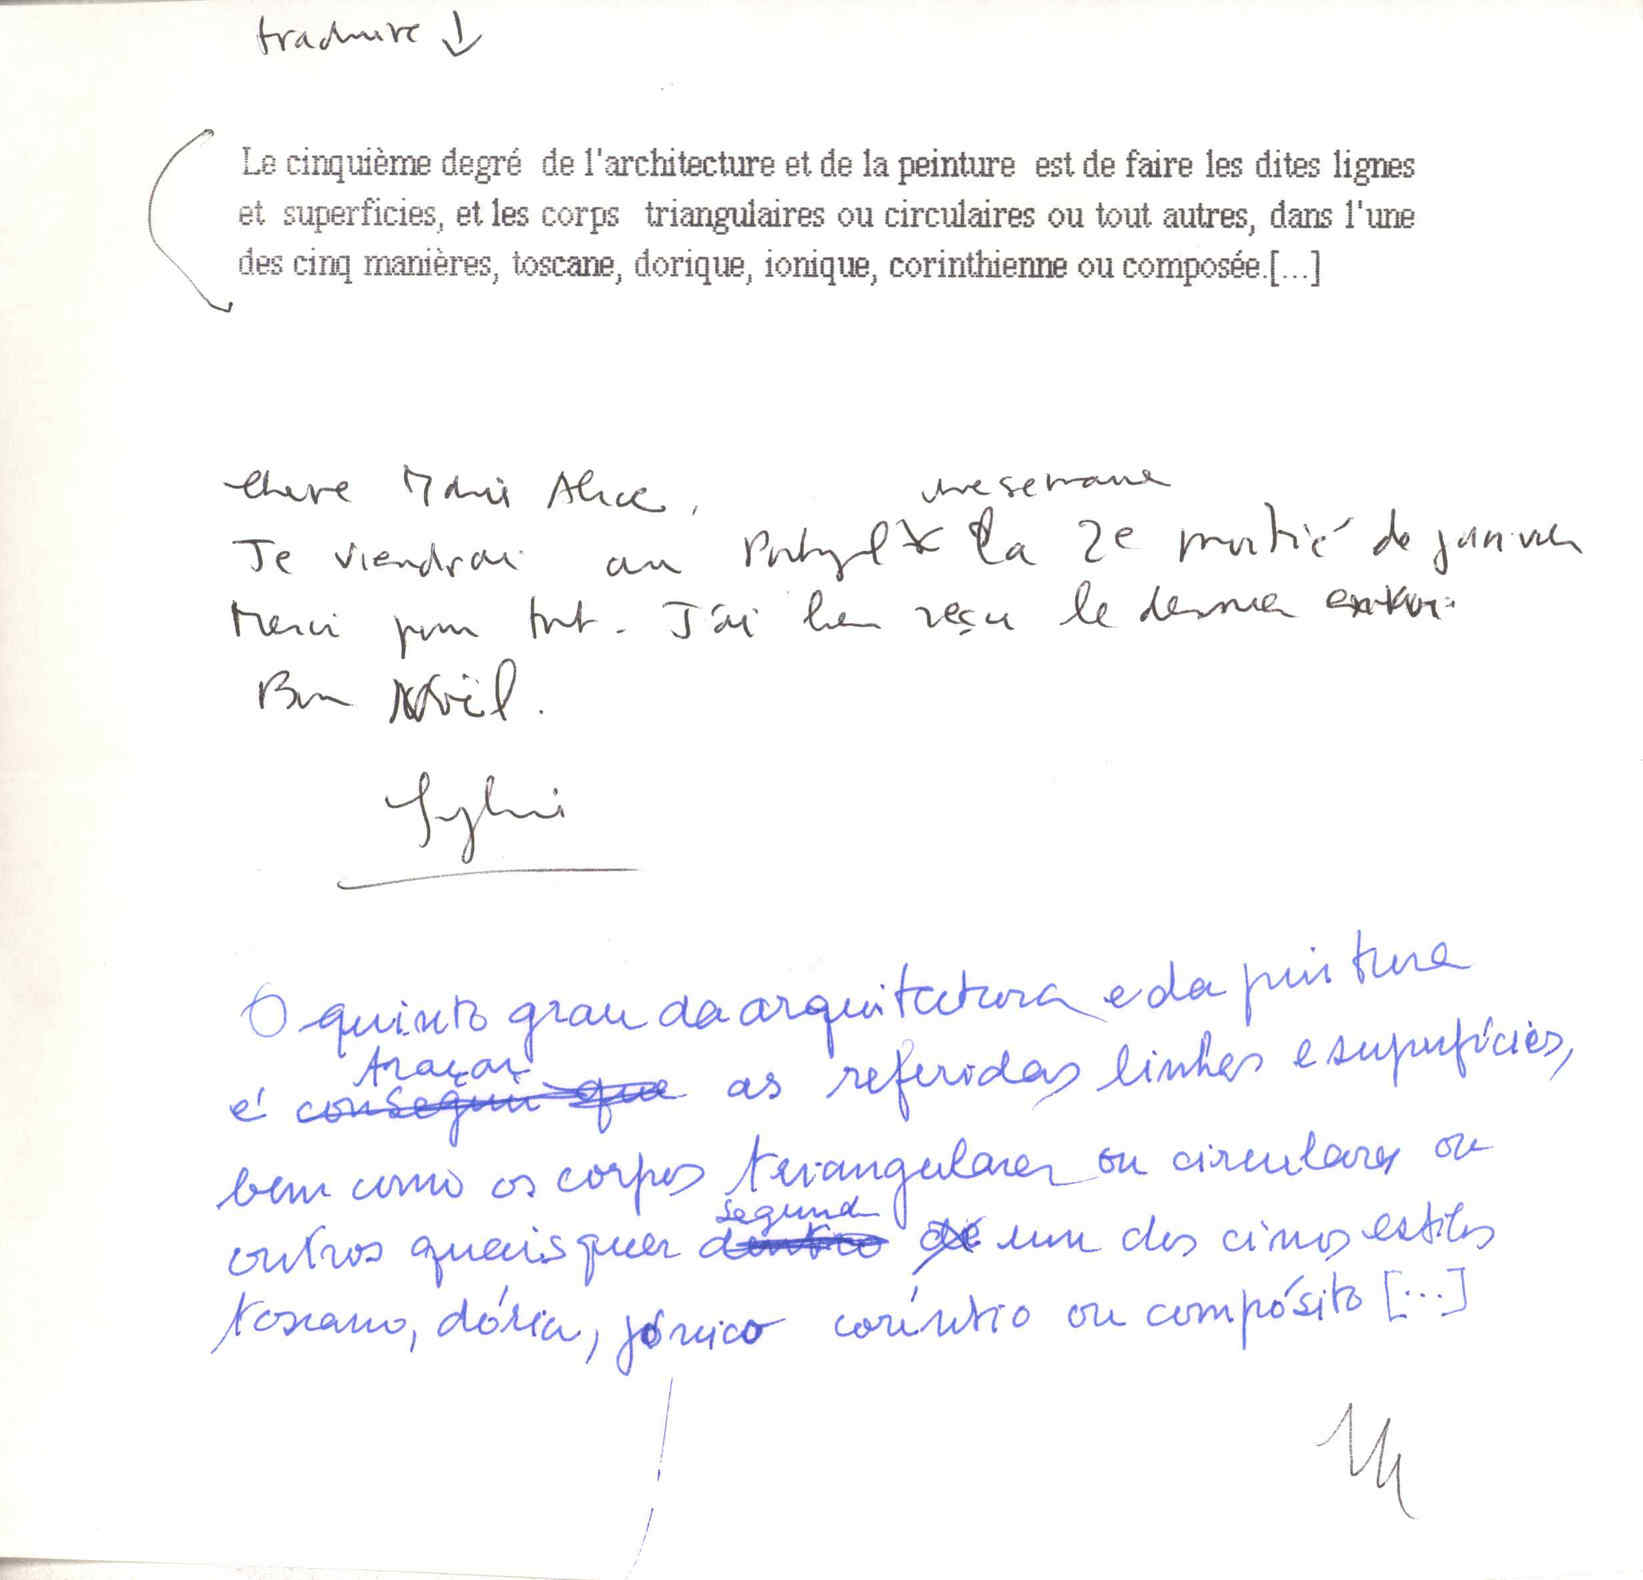 traduire ↓
Le cinquième degré de l'architecture et de la peinture est de faire les dites lignes
et superficies, et les corps triangulaires ou circulaires ou tout autres, dans l'une
des cinq manières, toscane, dorique, ionique, corinthienne ou composée.[...]
Chere Marie Alice,
une semaine
Je viendrai au Portugal la 2e moitié de janvier
Merci pour tout. J'ai bien reçu le dernier
Bon Noël.
Sylvie
O quinto grau da arquitectura e da pintura
traçar
é conseguir que as referidas linhas e superfícies,
bem como os corpos triangulares ou circulares ou
segundo
outros quaisquer dentro de um dos cinco estilos
toscano, dórico, jónico coríntio ou compósito [...]